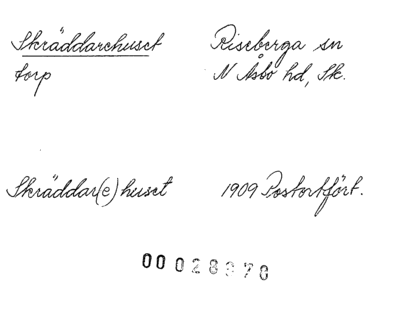 Skräddarehuset
torp
Riseberga sn
N Åsbo hd, Sk.
Skräddar(e)huset
1909 Postortfört.